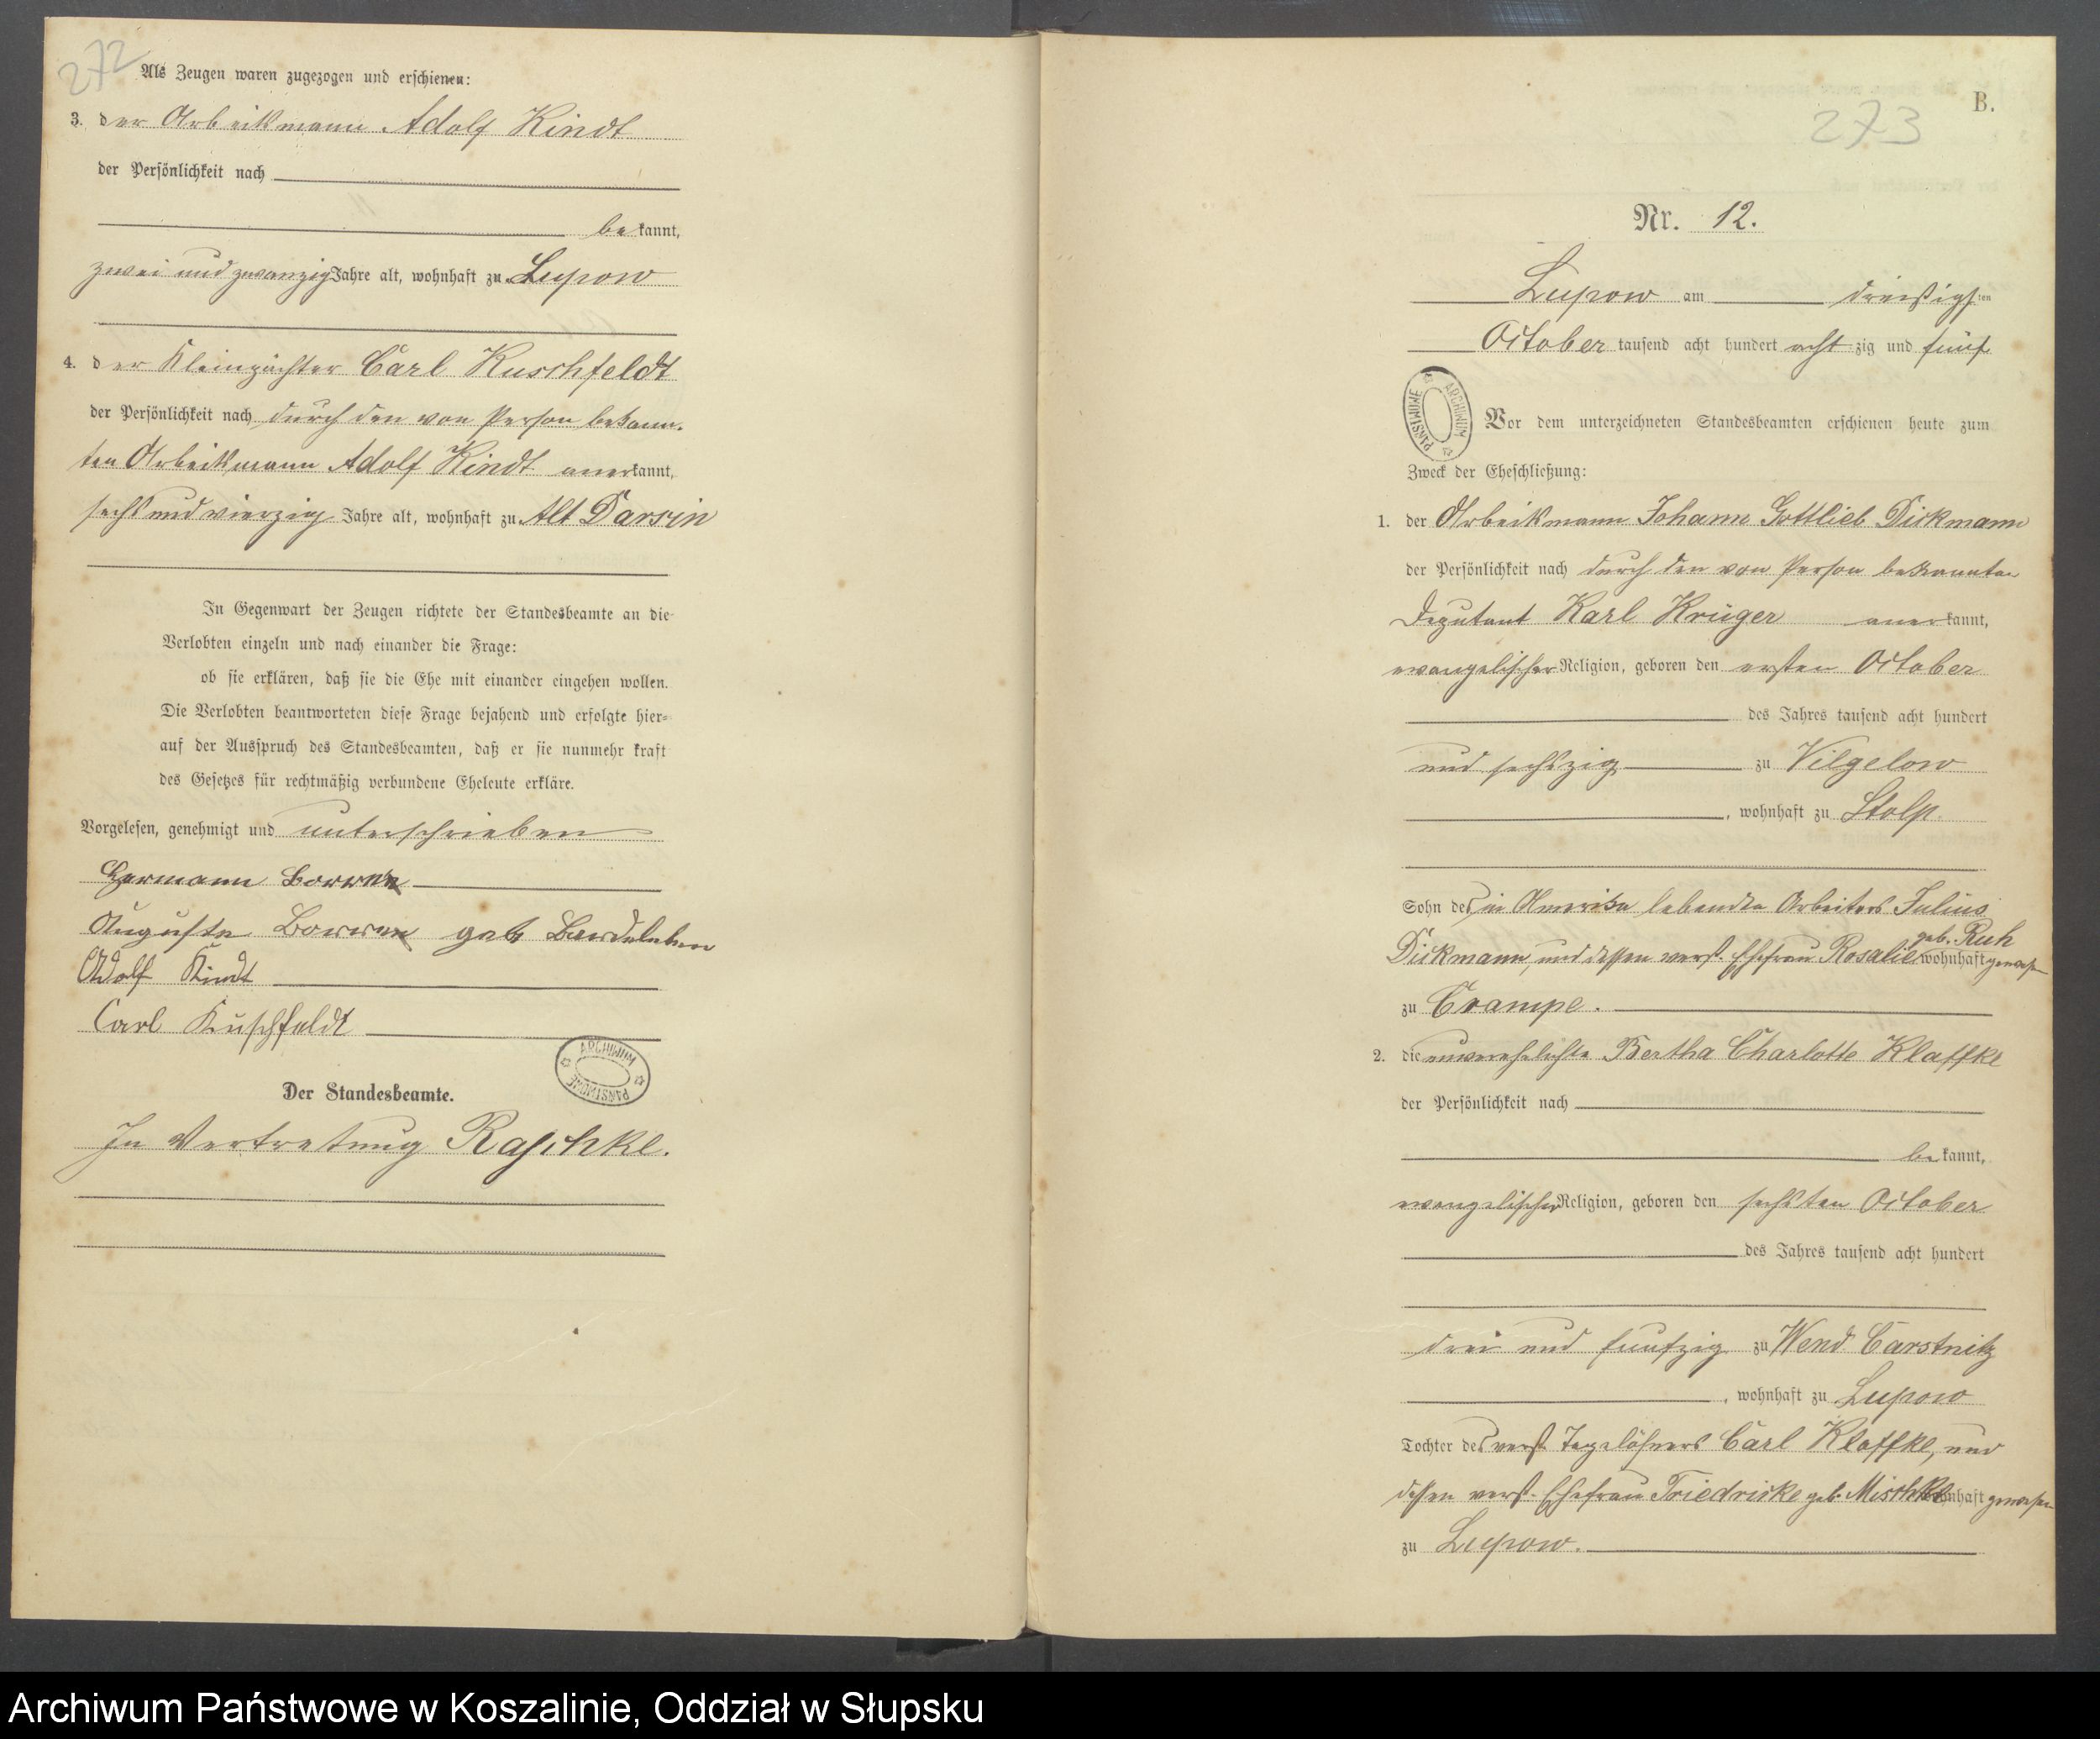 272
Als Zeugen waren zugezogen und erschienen:
3. der Arbeitsmann Adolf Kindt
der Persönlichkeit nach
be kannt,
zwei und zwanzig Jahre alt, wohnhaft zu Lupow
4. der Kleinpächter Carl Kuschfeldt
der Persönlichkeit nach durch den von Person bekann-
ten Arbeitsmann Adolf Kindt anerkannt,
sechs und vierzig Jahre alt, wohnhaft zu Alt Darsin
In Gegenwart der Zeugen richtete der Standesbeamte an die
Verlobten einzeln und nach einander die Frage:
ob sie erklären, daß sie die Ehe mit einander eingehen wollen.
Die Verlobten beantworteten diese Frage bejahend und erfolgte hier-
auf der Ausspruch des Standesbeamten, daß er sie nunmehr kraft
des Gesetzes für rechtmäßig verbundene Eheleute erkläre.
Vorgelesen, genehmigt und unterschrieben
Hermann
Auguste geb Bardeleben
Adolf Kindt
Carl Kuschfeldt
ARCHIWUM PAŃSTWOWE
Der Standesbeamte.
In Vertretung Raschke.
B.
273
Nr. 12.
Lupow am dreißigsten
October tausend acht hundert acht zig und fünf
ARCHIWUM PAŃSTWOWE
Vor dem unterzeichneten Standesbeamten erschienen heute zum
Zweck der Eheschließung:
1. der Arbeitsmann Johann Gottlieb Dickmann
der Persönlichkeit nach durch den von Person bekannten
Deputant Karl Krüger anerkannt,
evangelischer Religion, geboren den ersten October
des Jahres tausend acht hundert
und sechszig zu Vilgelow
, wohnhaft zu Stolp.
Sohn des in Amerika lebenden Arbeiters Julius
Dickmann, und dessen verst. Ehefrau Rosalie geb. Ruh wohnhaft gewesen
zu Crampe.
2. die unverehelichte Bertha Charlotte Klaffke
der Persönlichkeit nach
be kannt,
evangelischer Religion, geboren den sechsten October
des Jahres tausend acht hundert
drei und funfzig zu Wend Carstnitz
, wohnhaft zu Lupow
Tochter des verst. Tagelöhners Carl Klaffke, und
dessen verst. Ehefrau Friedricke geb. Mischke wohnhaft gewesen
zu Lupow.
Archiwum Państwowe w Koszalinie, Oddział w Słupsku